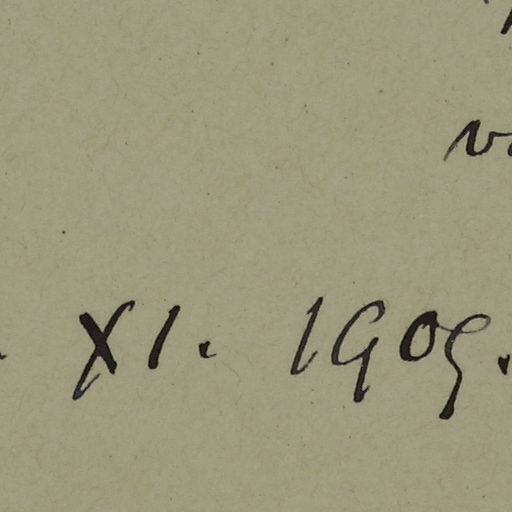 . XI. 1909.